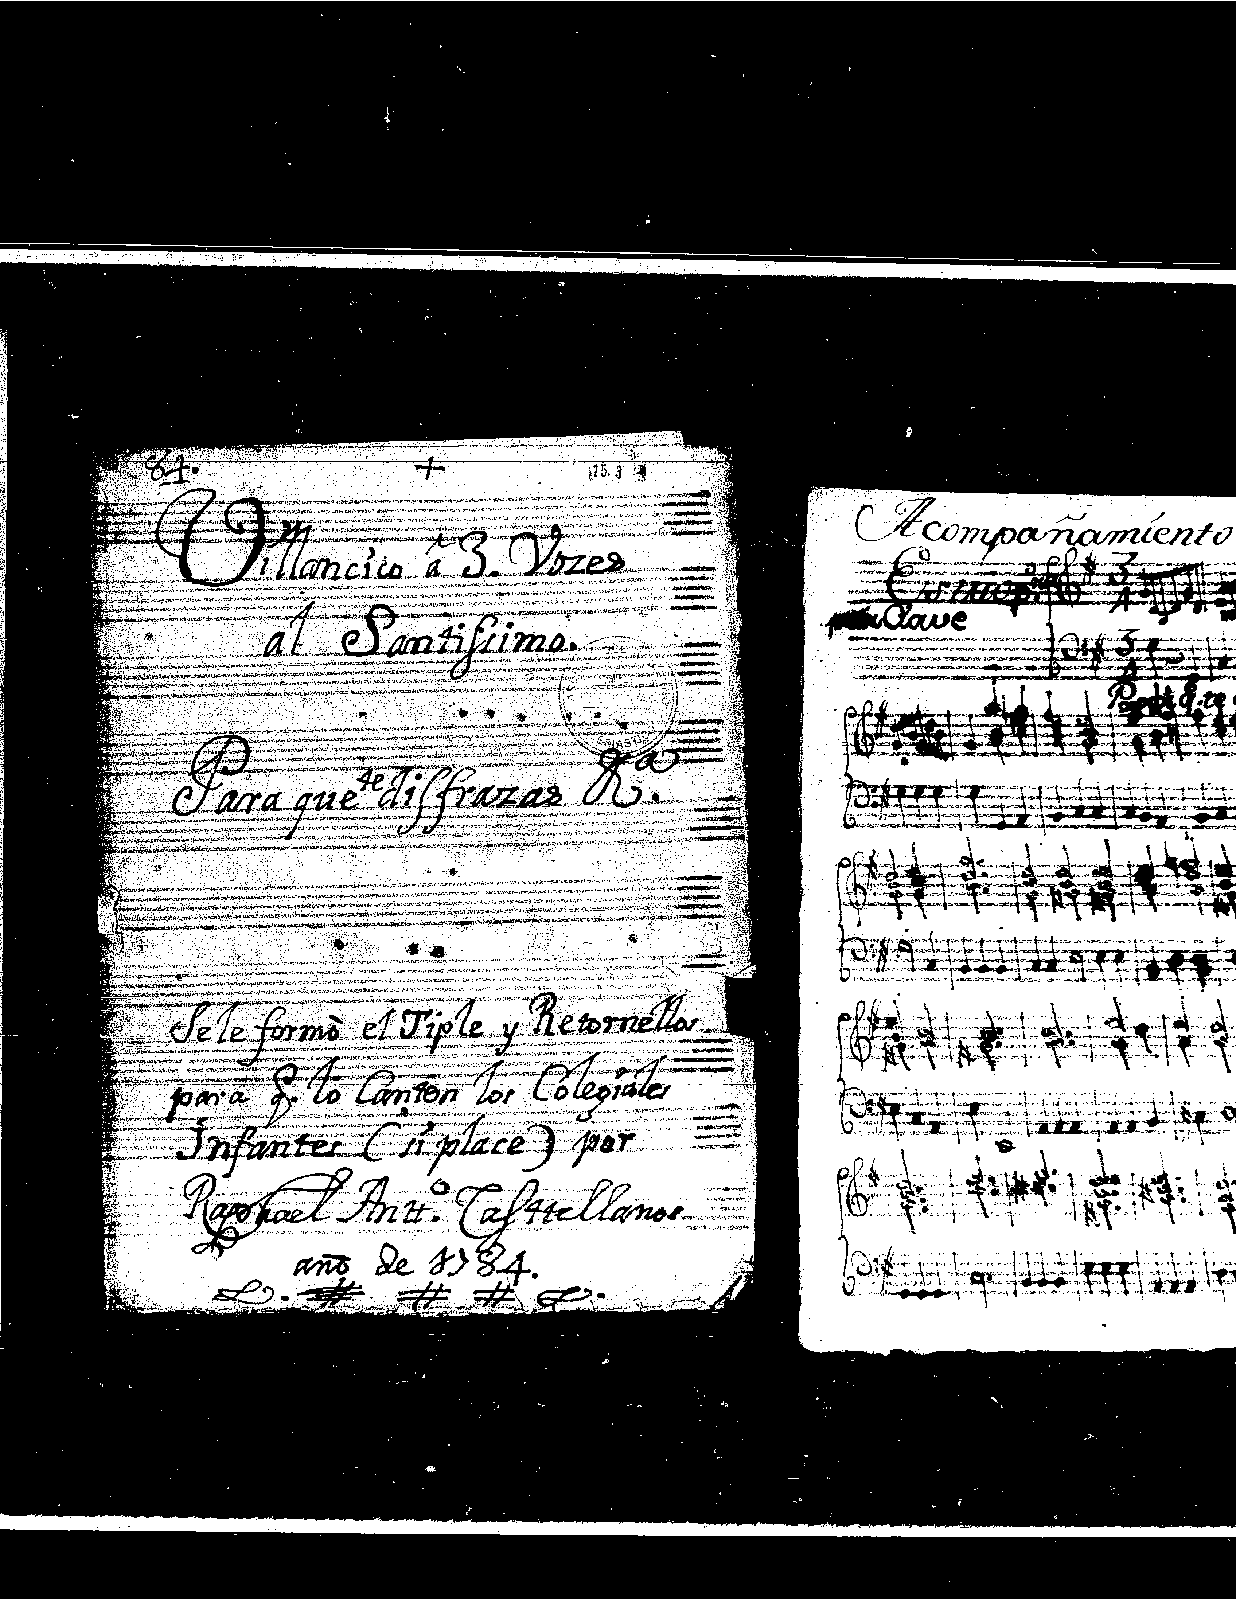 84. +
Villancico â 3. Vozes
al Santissimo.
Para que te disfrazas &a.
Se le formò el Tiple y Retornellos
para q. lo Canten los Colegiales
Infantes (si place) por
Raphael Antt.o Casttellanos
año de 1784.
Acompañamiento
Clave